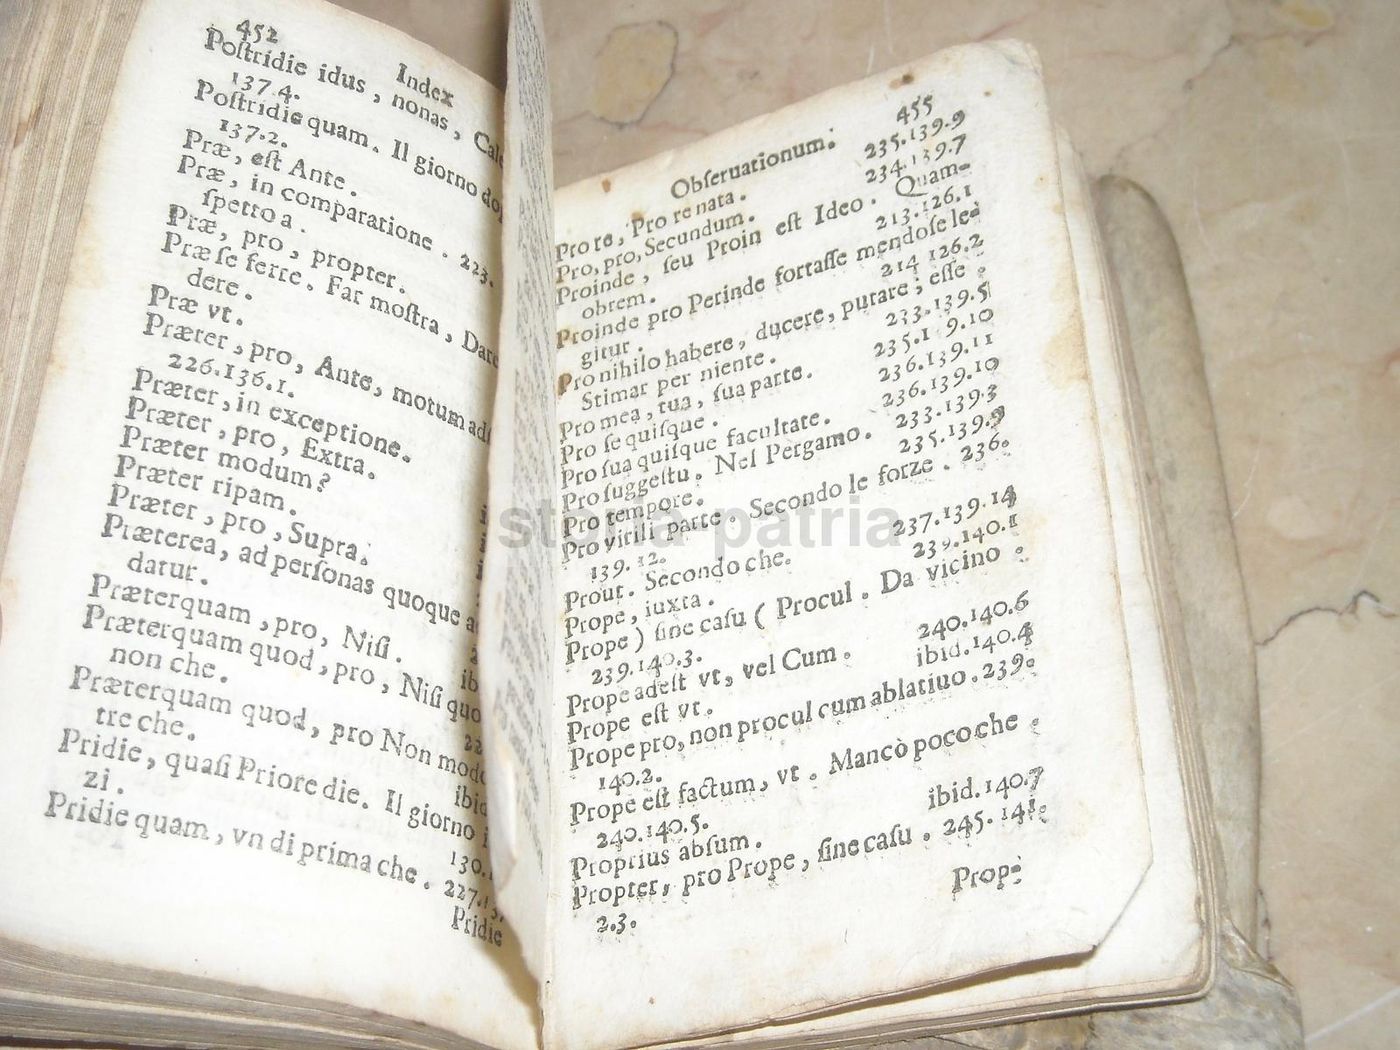 452
Index
Poſtridie idus, nonas, Cale
137.4.
Poſtridie quam. Il giorno dop
137.2.
Præ, eſt Ante.
Præ, in comparatione. 223.
ſpetto a.
Præ, pro, propter.
Præ ſe ferre. Far moſtra, Dare
dere.
Præ vt.
Præter, pro, Ante, motum ad
226.136.1.
Præter, in exceptione.
Præter, pro, Extra.
Præter modum?
Præter ripam.
Præter, pro, Supra.
Præterea, ad perſonas quoque a
datur.
Præterquam, pro, Niſi.
Præterquam quod, pro, Niſi quo
non che. ib
Præterquam quod, pro Non modo
tre che. ibid
Pridie, quaſi Priore die. Il giorno i
zi. 130.
Pridie quam, vn di prima che. 227.
Pridie
Obſeruationum. 455
Pro re, Pro re nata. 235.139.9
Pro, pro, Secundum. 234.139.7
Proinde, ſeu Proin eſt Ideo. Quam-
obrem. 213.126.1
Proinde pro Perinde fortaſſe mendoſe le-
gitur. 214.126.2
Pro nihilo habere, ducere, putare; eſſe.
Stimar per niente. 233.139.5
Pro mea, tua, ſua parte. 235.139.10
Pro ſe quiſque. 236.139.11
Pro ſua quiſque facultate. 236.139.10
Pro ſuggeſtu. Nel Pergamo. 233.139.3
Pro tempore. 235.139.9
Pro virili parte. Secondo le forze. 236.
139.12.
Prout. Secondo che. 237.139.14
Prope, iuxta. 239.140.1
Prope) ſine caſu (Procul. Da vicino.
239.140.3.
Prope adeſt vt, vel Cum. 240.140.6
Prope eſt vt. ibid.140.4
Prope pro, non procul cum ablatiuo. 239.
140.2.
Prope eſt factum, vt. Mancò poco che.
240.140.5.
Proprius abſum. ibid.140.7
Propter, pro Prope, ſine caſu. 245.141.
2.3.
Prop-
storia patria